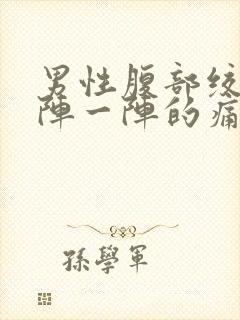 男性腹部绞
阵一阵的痛
孫學軍